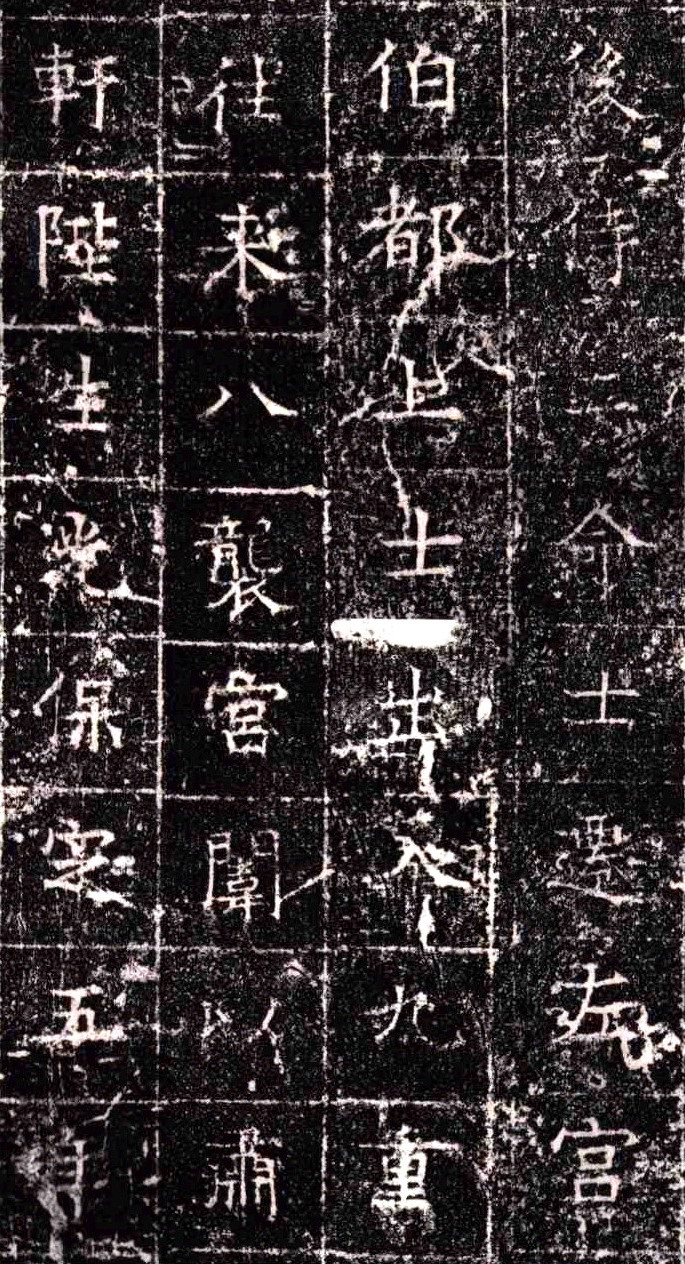 後侍二命士遷宮
伯都上士出入九重
往来八襲宮闈以肅
軒陛生光保定五